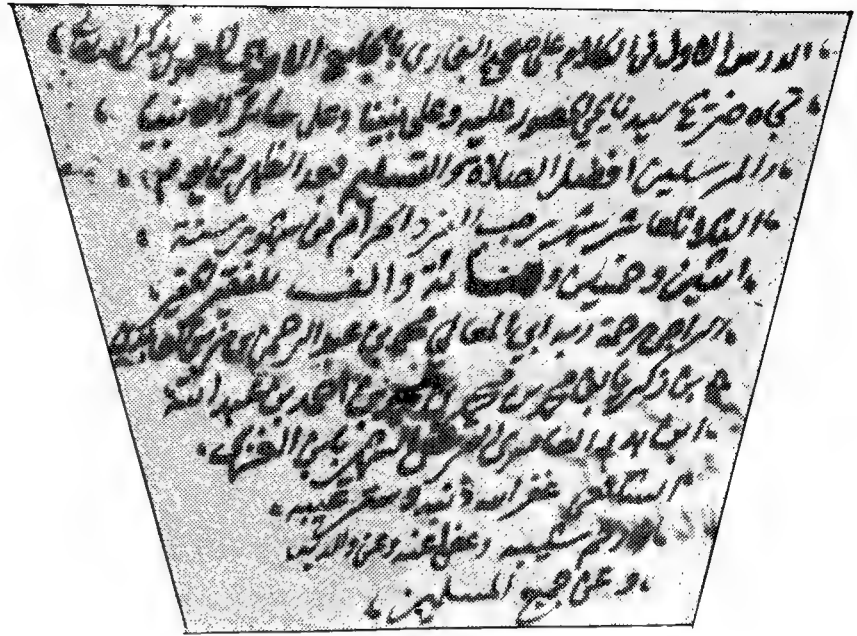 الدرس الاول في الكلام على صحيح البخاري بالجامع الاموي
تجاه ضريح سيدنا يحيى الحصور عليه وعلى نبينا وعلى سائر الانبيا
والمرسلين افضل الصلاة والتسليم بعد الظهر من يوم
الثلاثا عاشر شهر رجب الفرد الحرام من شهور سنة
اثنين وخمسين ومائة والف للفقير الحقير
الراجي رحمة ربه ابي المعالي محمد بن عبد الرحمن بن زين العابدين
بن زكريا بن محمد بن محمد بن احمد بن عبد الله
العامري الشهير بابن الغزي
الشافعي غفر الله ذنبه وستر عيبه
وعفى عنه وعن والديه
وعن جميع المسلمين